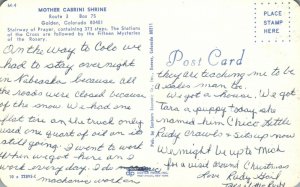 M-4
MOTHER CABRINI SHRINE
Route 3 Box 75
Golden, Colorado 80401
Stairway of Prayer, containing 373 steps. The Stations
of the Cross are followed by the Fifteen Mysteries
of the Rosary.
On the way to Colo we
had to stay overnight
in Nebraska because all
the roads were closed because
of the snow. We had one
flat tire on the truck only
used one quart of oil an its
still going. I went to work
when we got here an I
work every day. I do
mechanic work an
Post Card
PLACE
STAMP
HERE
they are teaching me to be
a sales man too.
We got a house. We got
Tara a puppy today she
named him Chico little
Rudy crawls & sits up now
We might be up to Mich
for a visit around Christmas
Love Rudy Gail
Tara & little Rudy